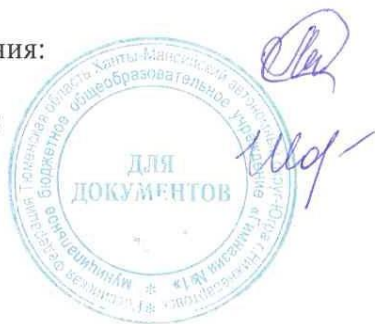 ния:
Российская Федерация Тюменская область Ханты-Мансийский автономный округ-Югра г. Нижневартовск
муниципальное бюджетное общеобразовательное учреждение «Гимназия №1»
ДЛЯ
ДОКУМЕНТОВ